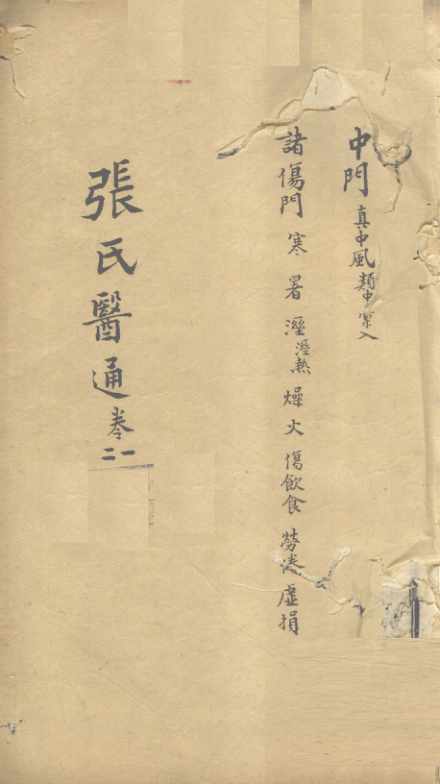 中門 真中風 類中
諸傷門 寒 暑 溼 溼熱 燥 火 傷飲食 勞倦 虛損
張氏醫通 卷一二